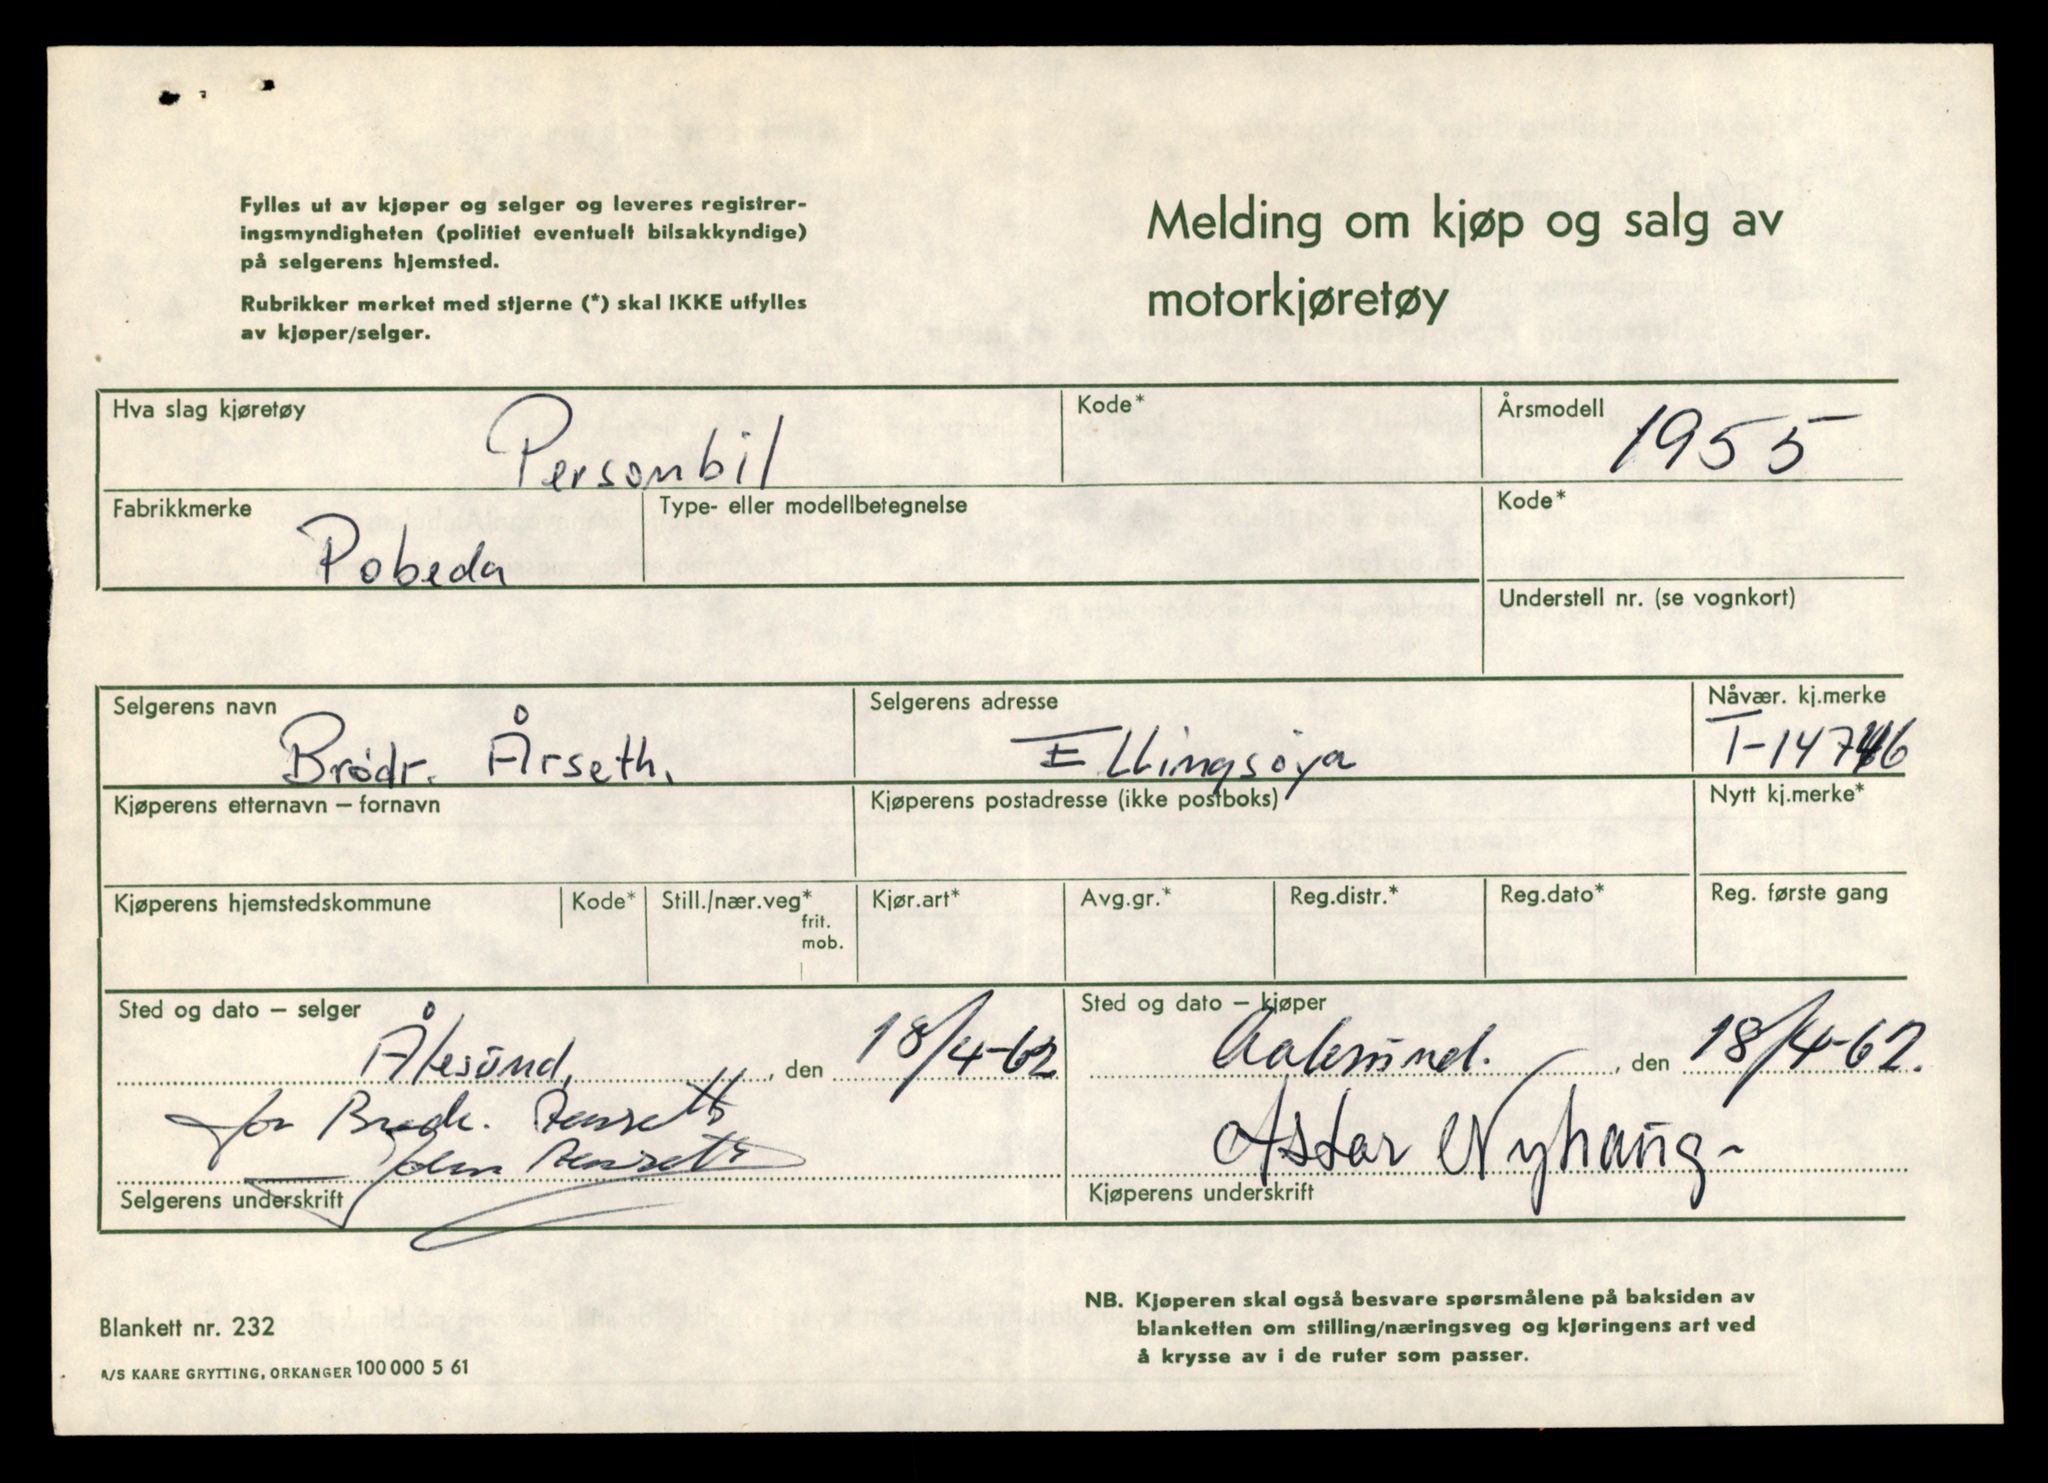 Fylles ut av kjøper og selger og leveres registrer-
ingsmyndigheten (politiet eventuelt bilsakkyndige)
på selgerens hjemsted.
Rubrikker merket med stjerne (*) skal IKKE utfylles
av kjøper/selger.
Melding om kjøp og salg av
motorkjøretøy
Hva slag kjøretøy
Personbil
Kode*
Årsmodell
1955
Fabrikkmerke
Pobeda
Type- eller modellbetegnelse
Kode*
Understell nr. (se vognkort)
Selgerens navn
Brødr. Årseth.
Selgerens adresse
Ellingsøya
Nåvær. kj.merke
Kjøperens etternavn – fornavn
Kjøperens postadresse (ikke postboks)
Nytt kj.merke*
Kjøperens hjemstedskommune
Kode*
Still./nær.veg*
frit.
mob.
Kjør.art*
Avg.gr.*
Reg.distr.*
Reg.dato*
Reg. første gang
Sted og dato – selger
Ålesund, den 18/4-62
for Brødr. Aarseth
John Aarseth
Selgerens underskrift
Sted og dato – kjøper
Aalesund. , den 18/4-62.
Astor Nyhaug
Kjøperens underskrift
Blankett nr. 232
A/S KAARE GRYTTING, ORKANGER 100 000 5 61
NB. Kjøperen skal også besvare spørsmålene på baksiden av
blanketten om stilling/næringsveg og kjøringens art ved
å krysse av i de ruter som passer.